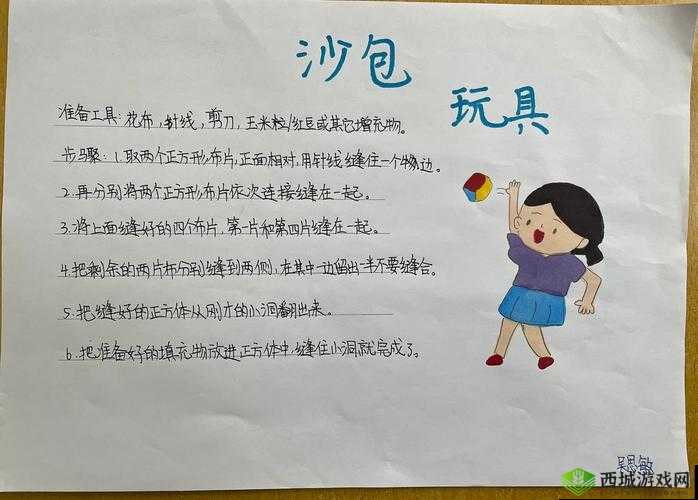 沙包
玩具
准备工具：花布，针线，剪刀，玉米粒/红豆或其它增充物。
步骤：1.取两个正方形布片，正面相对，用针线缝住一个物边。
2.再分别将两个正方形布片依次连接缝在一起。
3.将上面缝好的四个布片，第一片和第四片缝在一起。
4.把剩余的两片布分别缝到两侧，在其中一边留出一半不要缝合。
5.把缝好的正方体从刚才的小洞翻出来。
6.把准备好的填充物放进正方体中，缝住小洞就完成了。
吴思敏
西城游戏网